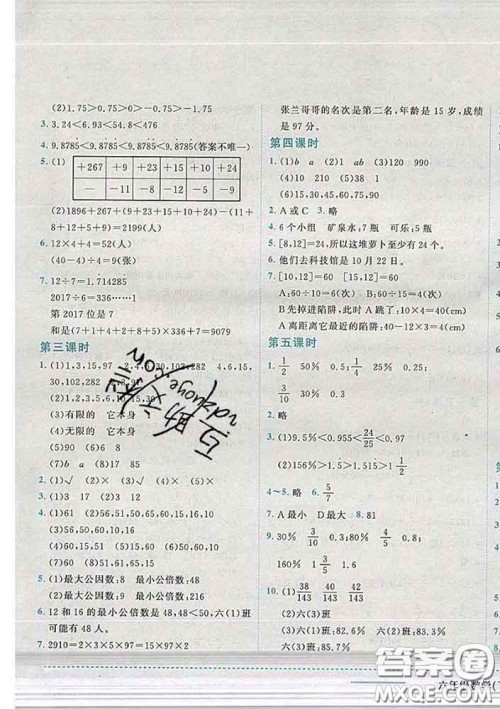 (2)1.75＞0.75＞0＞－0.75＞－1.75
3. 3.24＜6.93＜54.8＜5.4
4. 9.8785＜9.8785＜9.8785(答案不唯一)
5. (1)
+267 +9 +23 +12 +15 +10 +24
— — －11 — — －8 —
(2)1896+267+(9+23+12+15+10+24)－(11+
8+12+5+9)=2199(人)
6. 12×4+4=52(人)
(40－4)÷4=9(张)
7. 12÷7=1.714285
2017÷6=336……1
第 2017 位是 7
和是(7+1+4+2+8+5)×336+7=9079
第三课时
1. (1)
15,30,102,282
(2)1,2,3,5,6,10,15,30
(3)有限的 它本身
(5)无限的 它本身
(6)90 2
(7)b a (8)17 85
2. (1)√ (2)× (3)√
3. (1)× (2)× (3)√ (4)× (5)× (6)√
4. (1)56 (2)56,51,50,65,60,15,10,16
(3)56,50,60,10,16 (4)65,60,15,50,10
(5)56,50,60,10,16,65,51,15
(6)60,15,51
5. (1)最大公因数:8 最小公倍数:48
(2)最大公因数:6 最小公倍数:168
6. 12 和 16 的最小公倍数是 48,48＜50,六(1)班
可能有 48 人。
7. 2910=2×3×5×97=15×97×2
张兰哥哥的名次是第二名,年龄是 15 岁,成绩
是 97 分。
第四课时
1. (1)b a (2)1 ab (3)120 990
(4)10 210 (5)38 1
(6)15,30,45,60,75,90
2. A或C 3. 略
4. 6个小组 矿泉水:7瓶 可乐:5瓶
5. [8,12]=24,所以这堆萝卜至少有 24 个。
6. 他们去科技馆是 10 月 22 日。
7. [10,12]=60(cm)
A:60÷10=6(次) B:60÷12=5(次)
B先掉进陷阱,4×10=40(cm)
A离距离它最近的陷阱:10×4=40(cm)
第五课时
1. 1/2 50% 1/4 0.25 30% 3/10
2. 略
3. (1)9.5%＜0.955＜24/25＜1
(2)156%＞1.5＞1.515＞1 1/2
4～5. 略 6. 5/7
7. A最小 D最大 8. 81
9. 30% 3/10 0.3 80% 4/5 0.8
10. (1)六(1)班:34/40 六(2)班:35/42
六(3)班:38/46
(2)六(1)班:85% 六(2)班:83.3%
六(3)班:82.6% 六(1)班
六年级数学(
答案圈
MXQE.COM